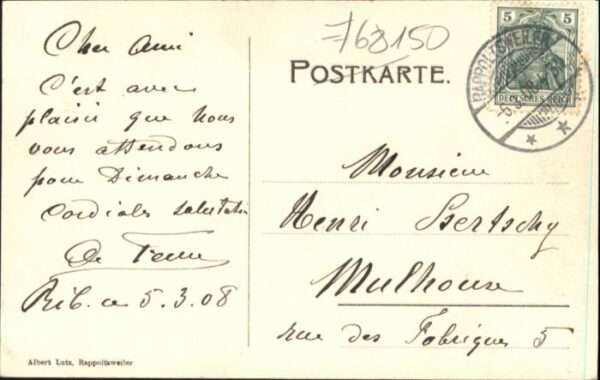 Cher Ami
C'est avec
plaisir que Nous
vous attendons
pour Dimanche
Cordiales salutations
Rib. 5.3.08
Albert Lutz, Rappoltsweiler
768150
POSTKARTE.
5 5
DEUTSCHES REICH
RAPPOLTSWEILER
Monsieur
Henri Bertschy
Mulhouse
rue des Fabriques 5